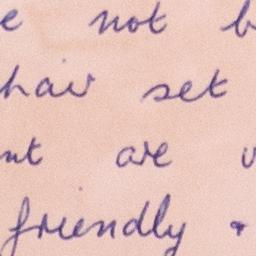 not
hair set
are
friendly +